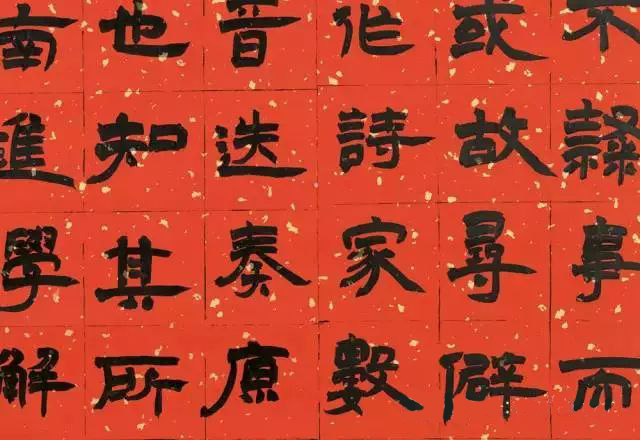 不隸事而
或故尋僻
作詩家數
晉迭奏原
也知其所
南進學解